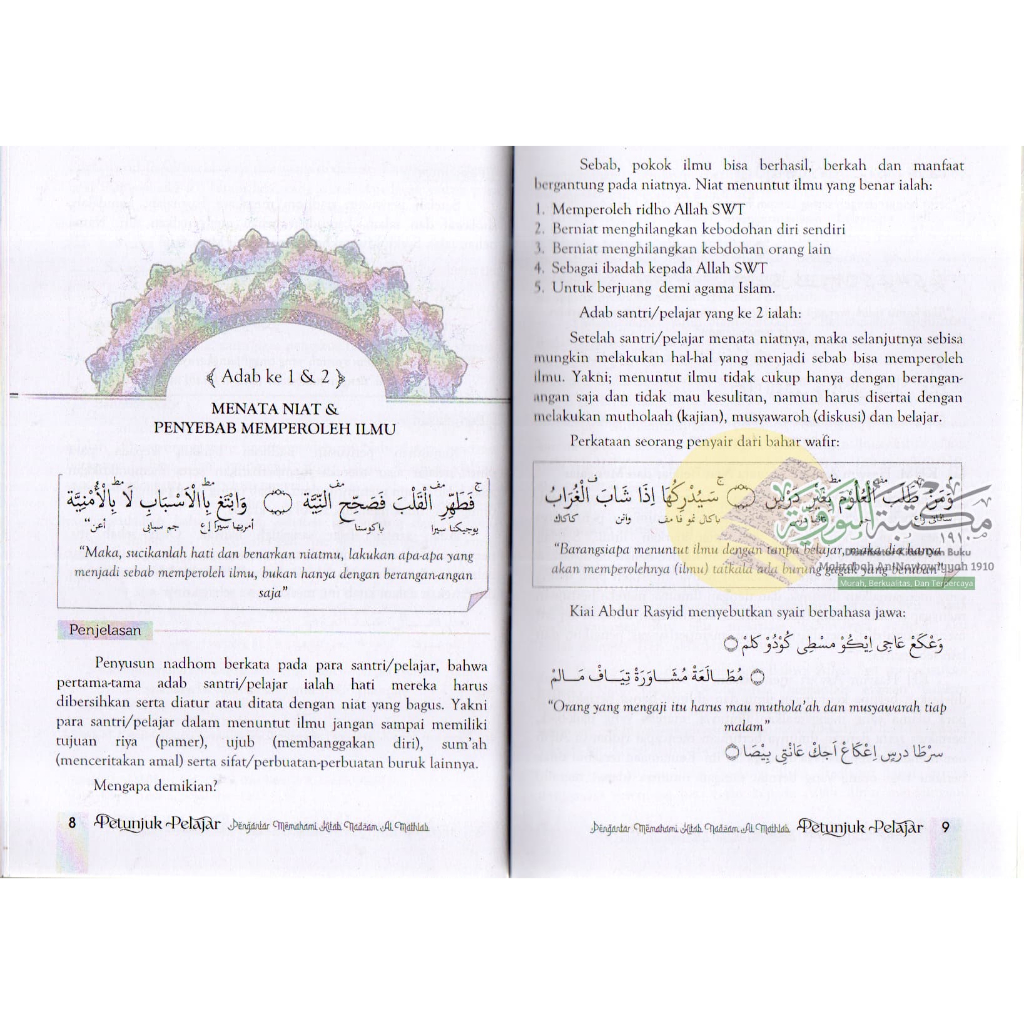 Adab ke 1 & 2
MENATA NIAT &
PENYEBAB MEMPEROLEH ILMU
فَطَهِّرِ الْقَلْبَ فَصَحِّحِ النِّيَّة ۝ وَابْتَغِ بِاالْاَسْبَابِ لَا بِالْأُمْنِيَّة
“Maka, sucikanlah hati dan benarkan niatmu, lakukan apa-apa yang
menjadi sebab memperoleh ilmu, bukan hanya dengan berangan-angan
saja”
Penjelasan
Penyusun nadhom berkata pada para santri/pelajar, bahwa
pertama-tama adab santri/pelajar ialah hati mereka harus
dibersihkan serta diatur atau ditata dengan niat yang bagus. Yakni
para santri/pelajar dalam menuntut ilmu jangan sampai memiliki
tujuan riya (pamer), ujub (membanggakan diri), sum’ah
(menceritakan amal) serta sifat/perbuatan-perbuatan buruk lainnya.
Mengapa demikian?
8 Petunjuk Pelajar Pengantar Memahami Kitab Nadzam Al Mathlab
Sebab, pokok ilmu bisa berhasil, berkah dan manfaat
bergantung pada niatnya. Niat menuntut ilmu yang benar ialah:
1. Memperoleh ridho Allah SWT
2. Berniat menghilangkan kebodohan diri sendiri
3. Berniat menghilangkan kebdohan orang lain
4. Sebagai ibadah kepada Allah SWT
5. Untuk berjuang demi agama Islam.
Adab santri/pelajar yang ke 2 ialah:
Setelah santri/pelajar menata niatnya, maka selanjutnya sebisa
mungkin melakukan hal-hal yang menjadi sebab bisa memperoleh
ilmu. Yakni; menuntut ilmu tidak cukup hanya dengan berangan-
angan saja dan tidak mau kesulitan, namun harus disertai dengan
melakukan mutholaah (kajian), musyawaroh (diskusi) dan belajar.
Perkataan seorang penyair dari bahar wafir:
وَمَنْ طَلَبَ الْعُلُوْمَ بِغَيْرِ دَرْسٍ ۝ سَيُدْرِكُهَا اِذَا شَابَ الْغُرَابُ
“Barangsiapa menuntut ilmu dengan tanpa belajar, maka dia hanya
akan memperolehnya (ilmu) tatkala ada burung gagak yang beruban”
مكتبة النووية
١٩١٠
Distributor Kitab Dan Buku
Maktabah An-Nawawiyyah 1910
Murah, Berkualitas, Dan Terpercaya
Kiai Abdur Rasyid menyebutkan syair berbahasa jawa:
وَعْكَعْ عَاجِى اِيْكُوْ مسْطِى كُوْدُوْ كلمْ ۝
۝ مُطَالَعَةْ مُشَاوَرَةْ تِيَافْ مَالمْ
“Orang yang mengaji itu harus mau muthola’ah dan musyawarah tiap
malam”
سرْطَا درسِ اِعْكَاعْ اَجكْ عَانْتِى بِيْصَا ۝
Pengantar Memahami Kitab Nadzam Al Mathlab Petunjuk Pelajar 9